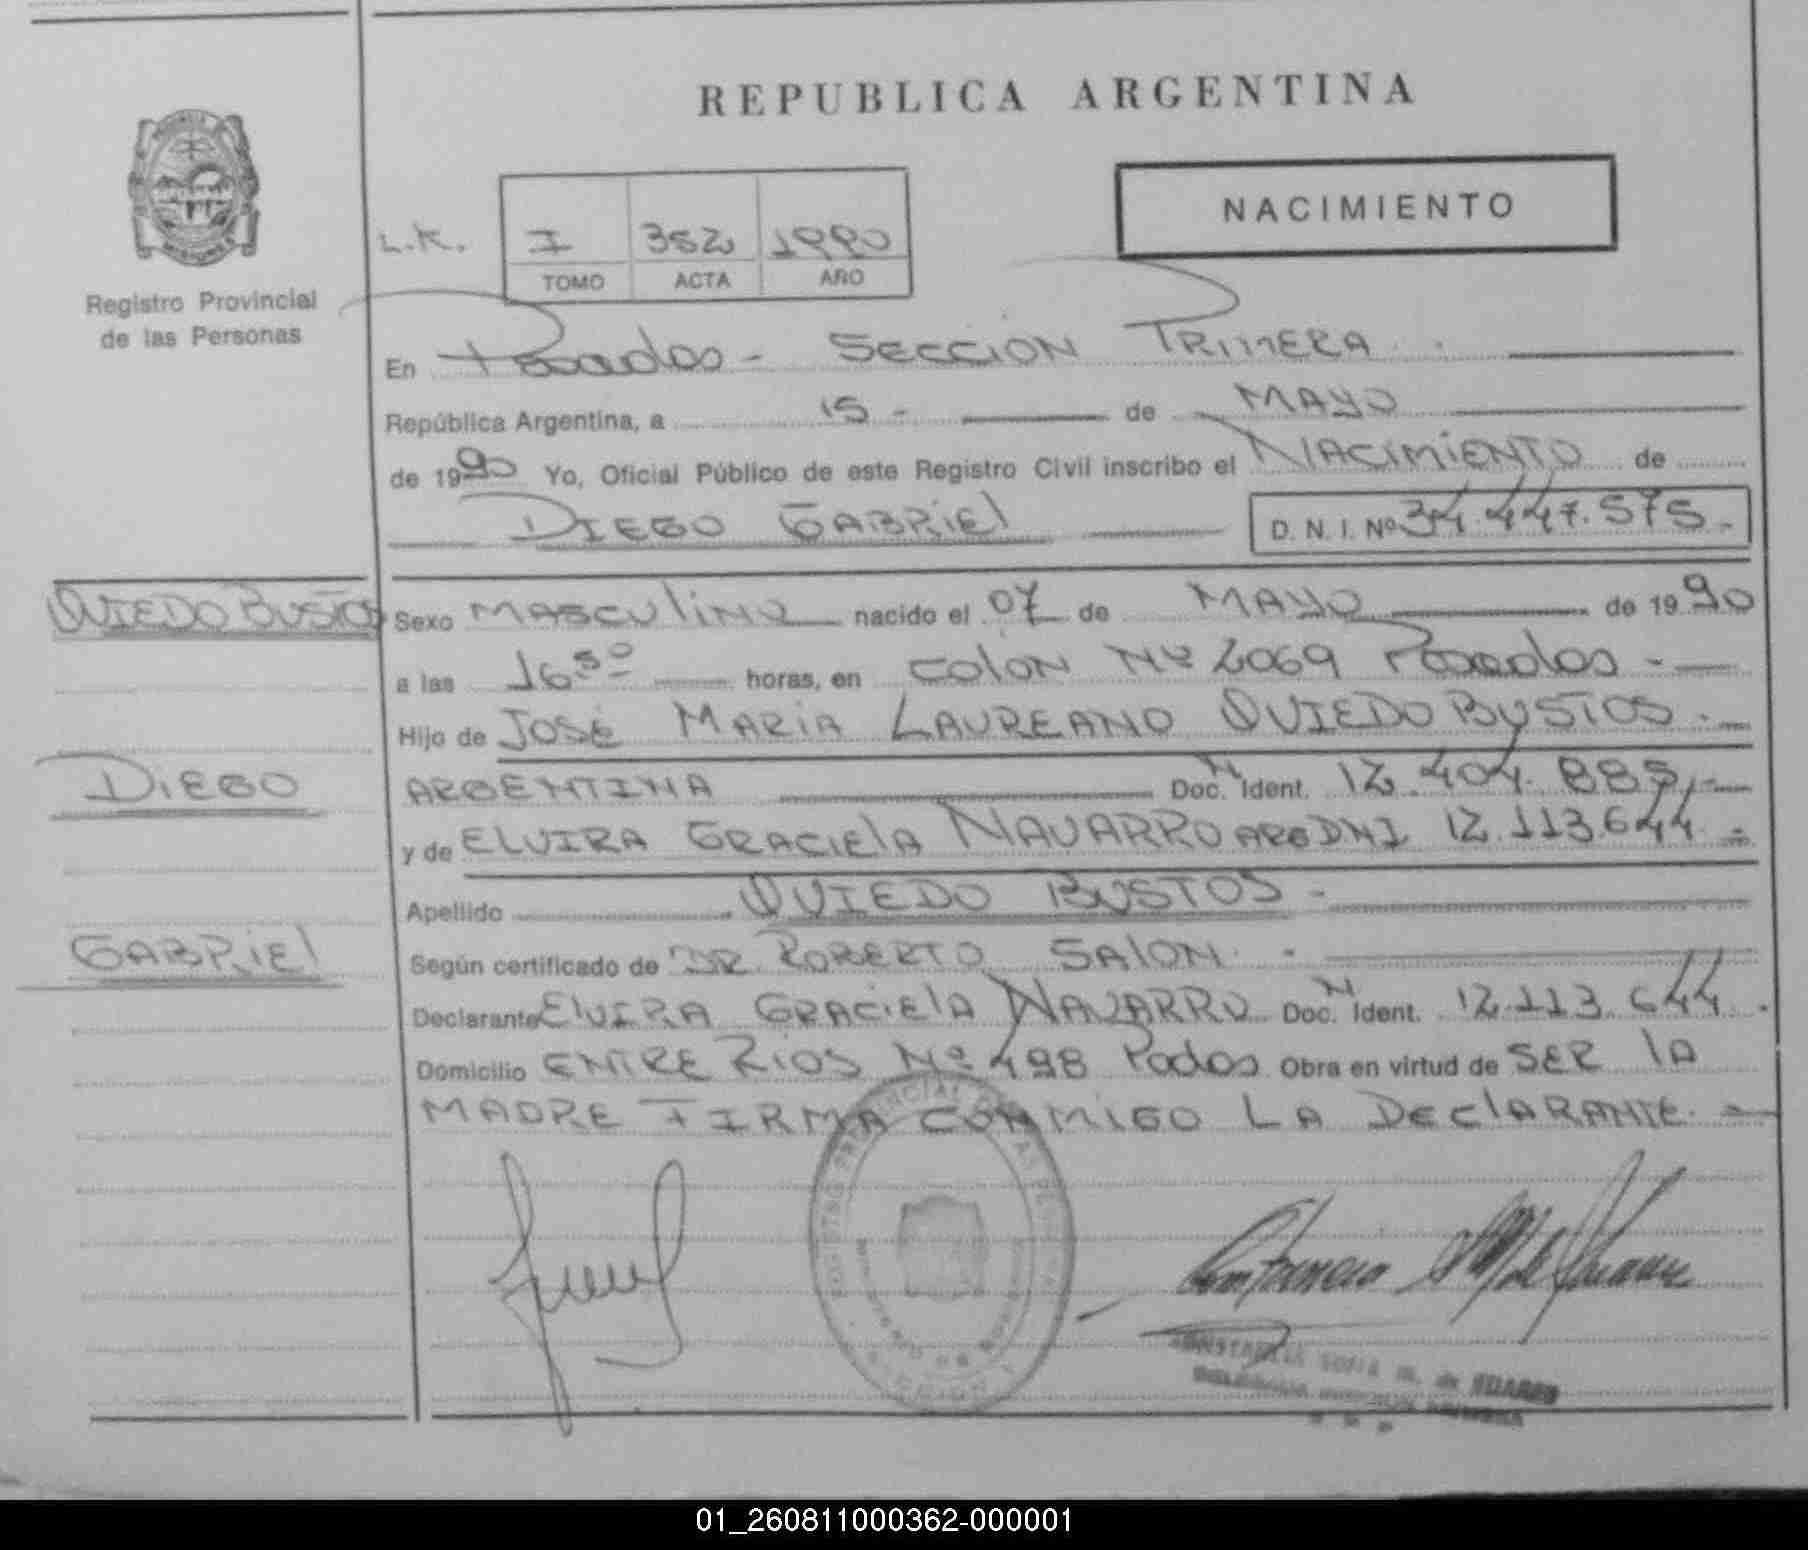 REPUBLICA ARGENTINA
NACIMIENTO
L.K. I 352 1990
TOMO ACTA AÑO
Registro Provincial
de las Personas
En Posadas - SECCION PRIMERA
República Argentina, a 15 - de MAYO
de 1990 Yo, Oficial Público de este Registro Civil inscribo el NACIMIENTO de
DIEGO GABRIEL D. N. I. Nº 34.447.575.-
OVIEDO BUSTOS
DIEGO
GABRIEL
Sexo MASCULINO nacido el 07 de MAYO de 1990
a las 16 50 horas, en COLON Nº 2069 Posadas -
Hijo de JOSE MARIA LAUREANO OVIEDO BUSTOS.-
ARGENTINA Doc. N Ident. 12.404.885.-
y de ELVIRA GRACIELA NAVARRO ARG DNI 12.113.644.-
Apellido OVIEDO BUSTOS -
Según certificado de DR. ROBERTO SALON. -
Declarante ELVIRA GRACIELA NAVARRO Doc. N Ident. 12.113.644.
Domicilio ENTRE RIOS Nº 498 Podas Obra en virtud de SER LA
MADRE FIRMA CONMIGO LA DECLARANTE.-
SOFIA M. de SUARES
01_260811000362-000001